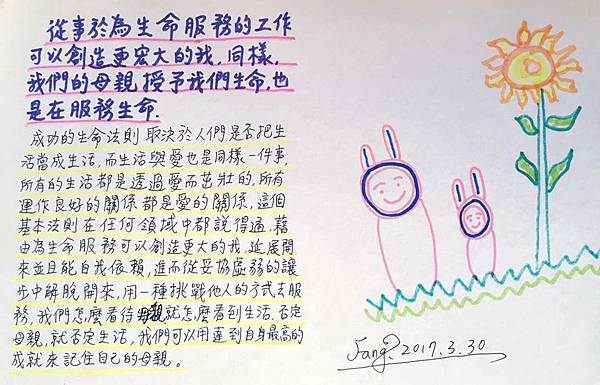 從事於為生命服務的工作
可以創造更宏大的我,同樣,
我們的母親授予我們生命,也
是在服務生命.
成功的生命法則取決於人們是否把生
活當成生活,而生活與愛也是同樣一件事,
所有的生活都是透過愛而茁壯的,所有
運作良好的關係都是愛的關係,這個
基本法則在任何領域中都說得過,藉
由為生命服務可以創造更大的我,延展開
來並且能自我依賴,進而從妥協虛弱的讓
步中解脫開來,用一種挑戰他人的方式去服
務,我們怎麼看待母親,就怎麼看到生活.否定
母親,就否定生活,我們可以用達到自身最高的
成就來記住自己的母親。
Fang 2017.3.30